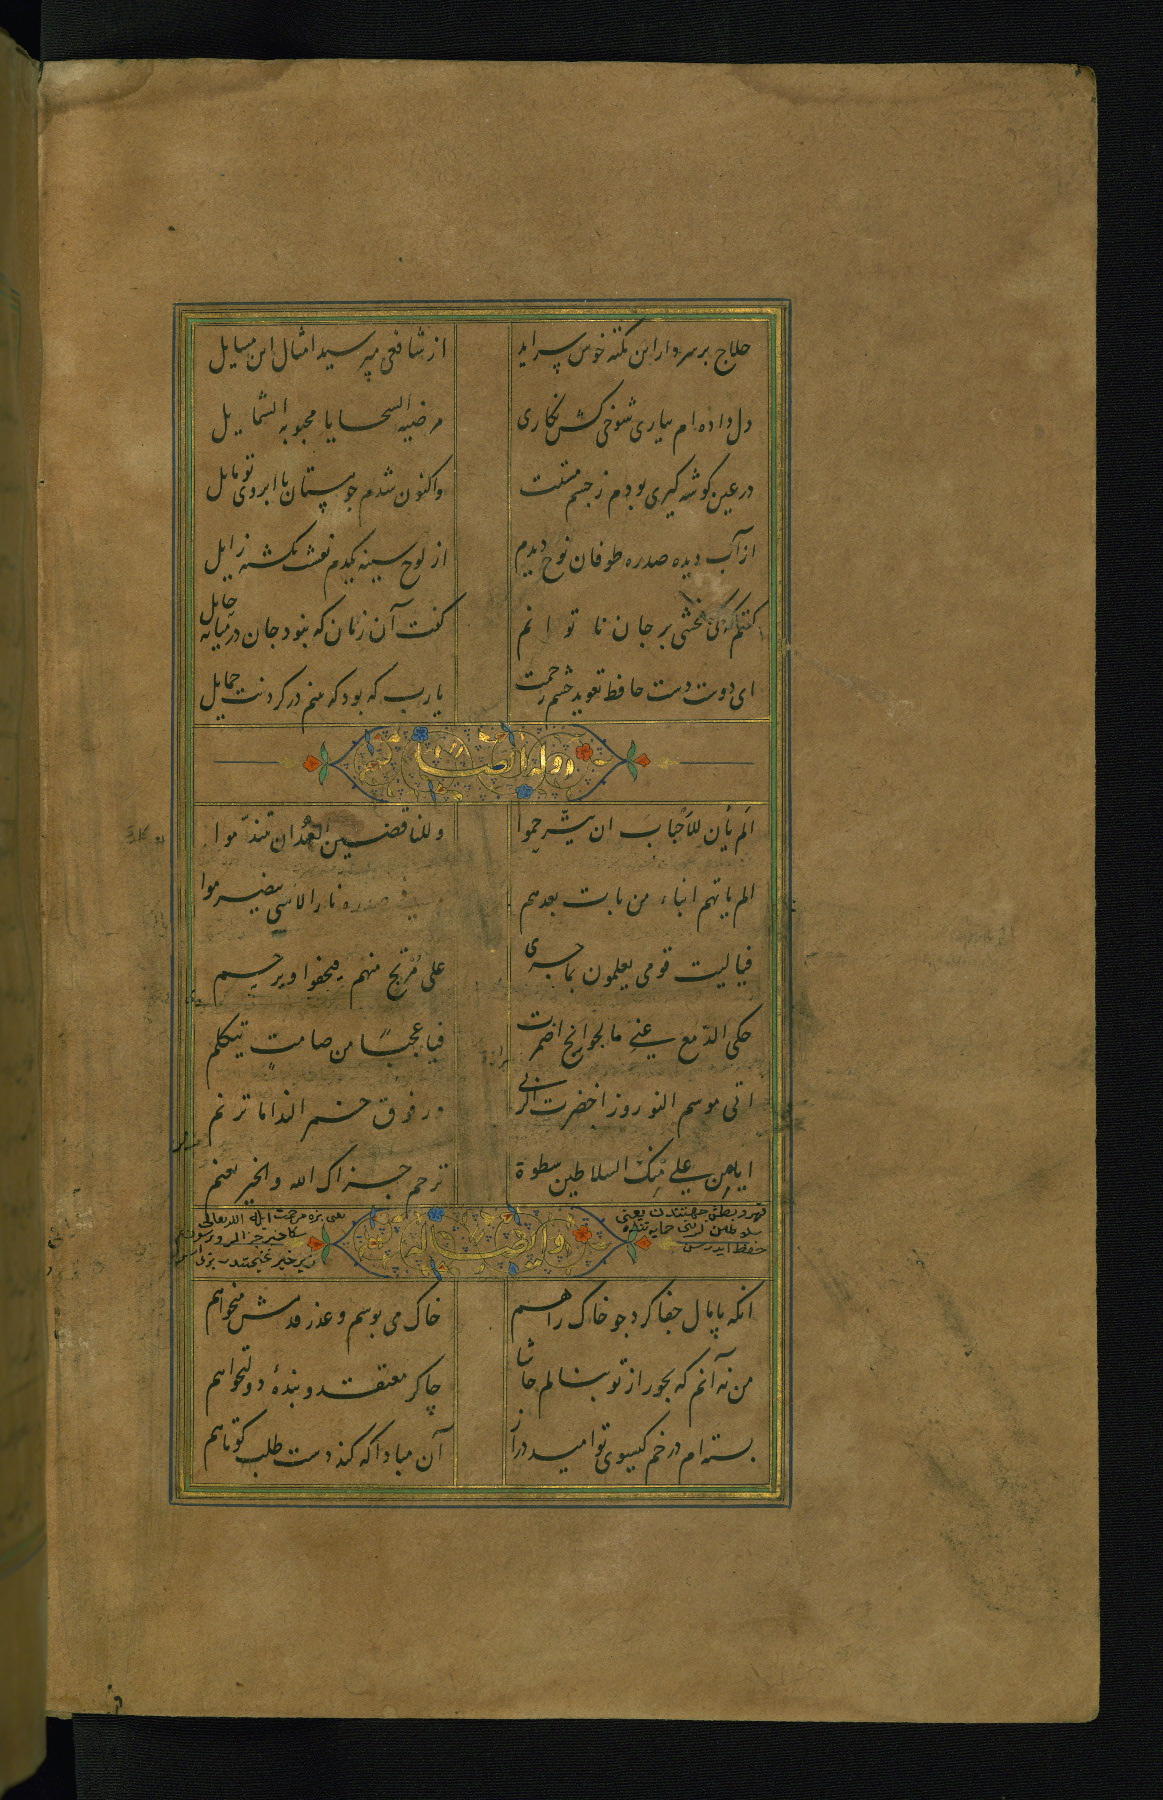 حلاج بر سر دار این نکته خوش سراید از شافعی مپرسید امثال این مسایل
دل داده ام بیاری شوخی کشی نگاری مرضیه السجایا محبوبه الشمایل
در عین گوشه گیری بودم ز چشم مستت واکنون شدم چو مستان با ابروی تو مایل
از آب دیده صد ره طوفان نوح دیدم از لوح سینه یکدم نقشت نگشته زایل
گفتم که کی بخشی بر جان ناتوانم گفت آن زمان که نبود جان در میانه حایل
ای دوست دست حافظ تعوید چشم زحمت یارب که بود که بینم در گردنت حمایل
وله ایضا
الم یأن للاحباب ان یترحموا وللناقضین العهد ان تندموا
الم یاتهم انباء من بات بعدهم فی صدره نار الاسی یتضرموا
فیالیت قومی یعلمون بما جری علی مرتج منهم فیعفوا ویرحم
حکی الدمع عنی ما لجوانح اضمرت فیا عجبًا من صامتٍ یتکلم
اتی موسم النوروز اخضرت الربی ورقوق خمر الندا ما ترنم
ایا من علی منک السلاطین سطوة ترحم جزاک الله والخیر یغنم
وله ایضا
آنکه پامال جفا کرد چو خاک راهم خاک می بوسم و عذر قدمش میخواهم
من نه آنم که بجور از تو بنالم حاشا چاکر معتقد و بندهٔ دولتخواهم
بسته ام در خم گیسوی تو امید دراز آن مبادا که کند دست طلب کوتاهم